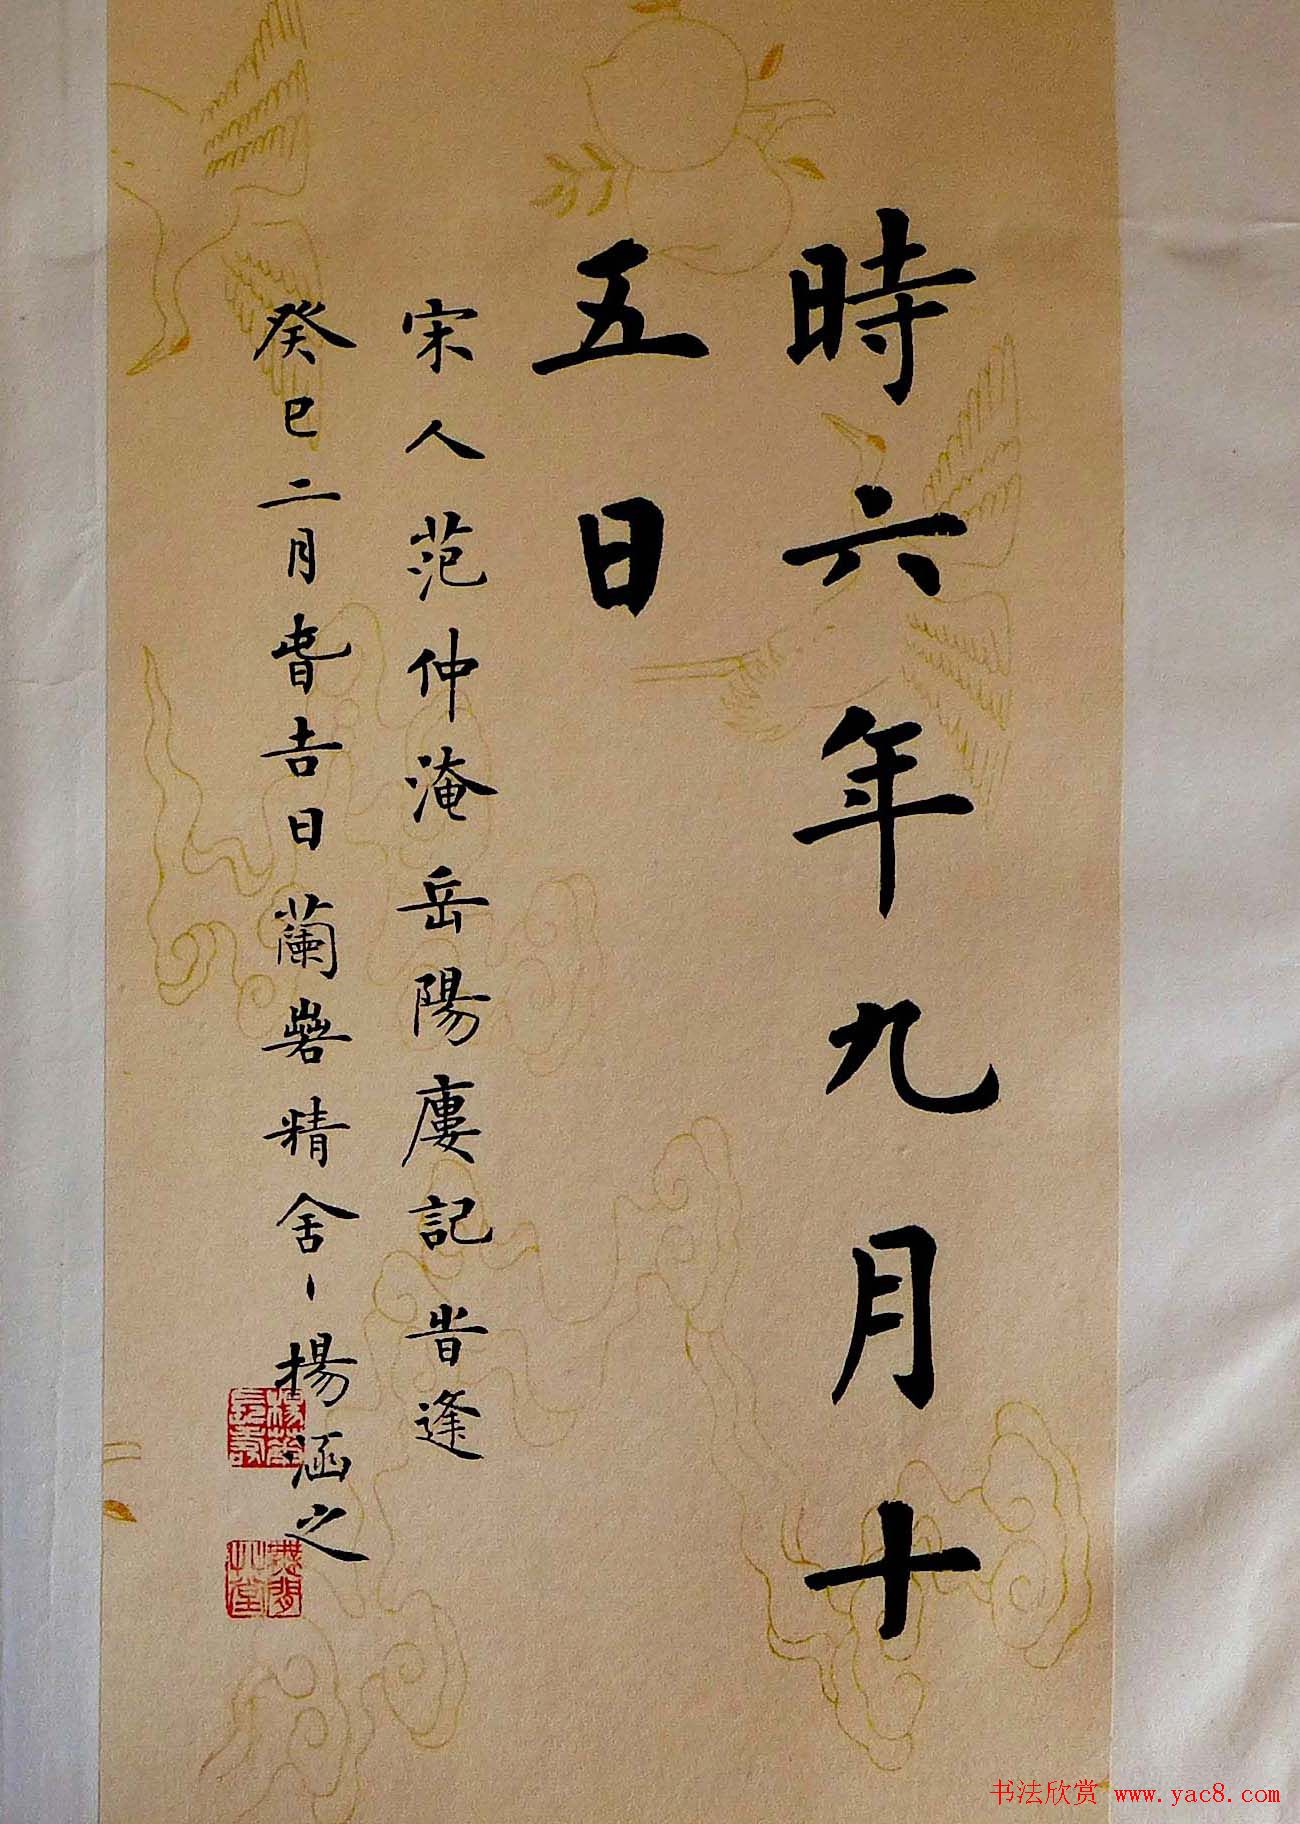 時六年九月十
五日
宋人范仲淹岳陽廔記旹逢
癸巳二月旹吉日蘭礐精舍丶揚涵之
书法欣赏 www.yac8.com